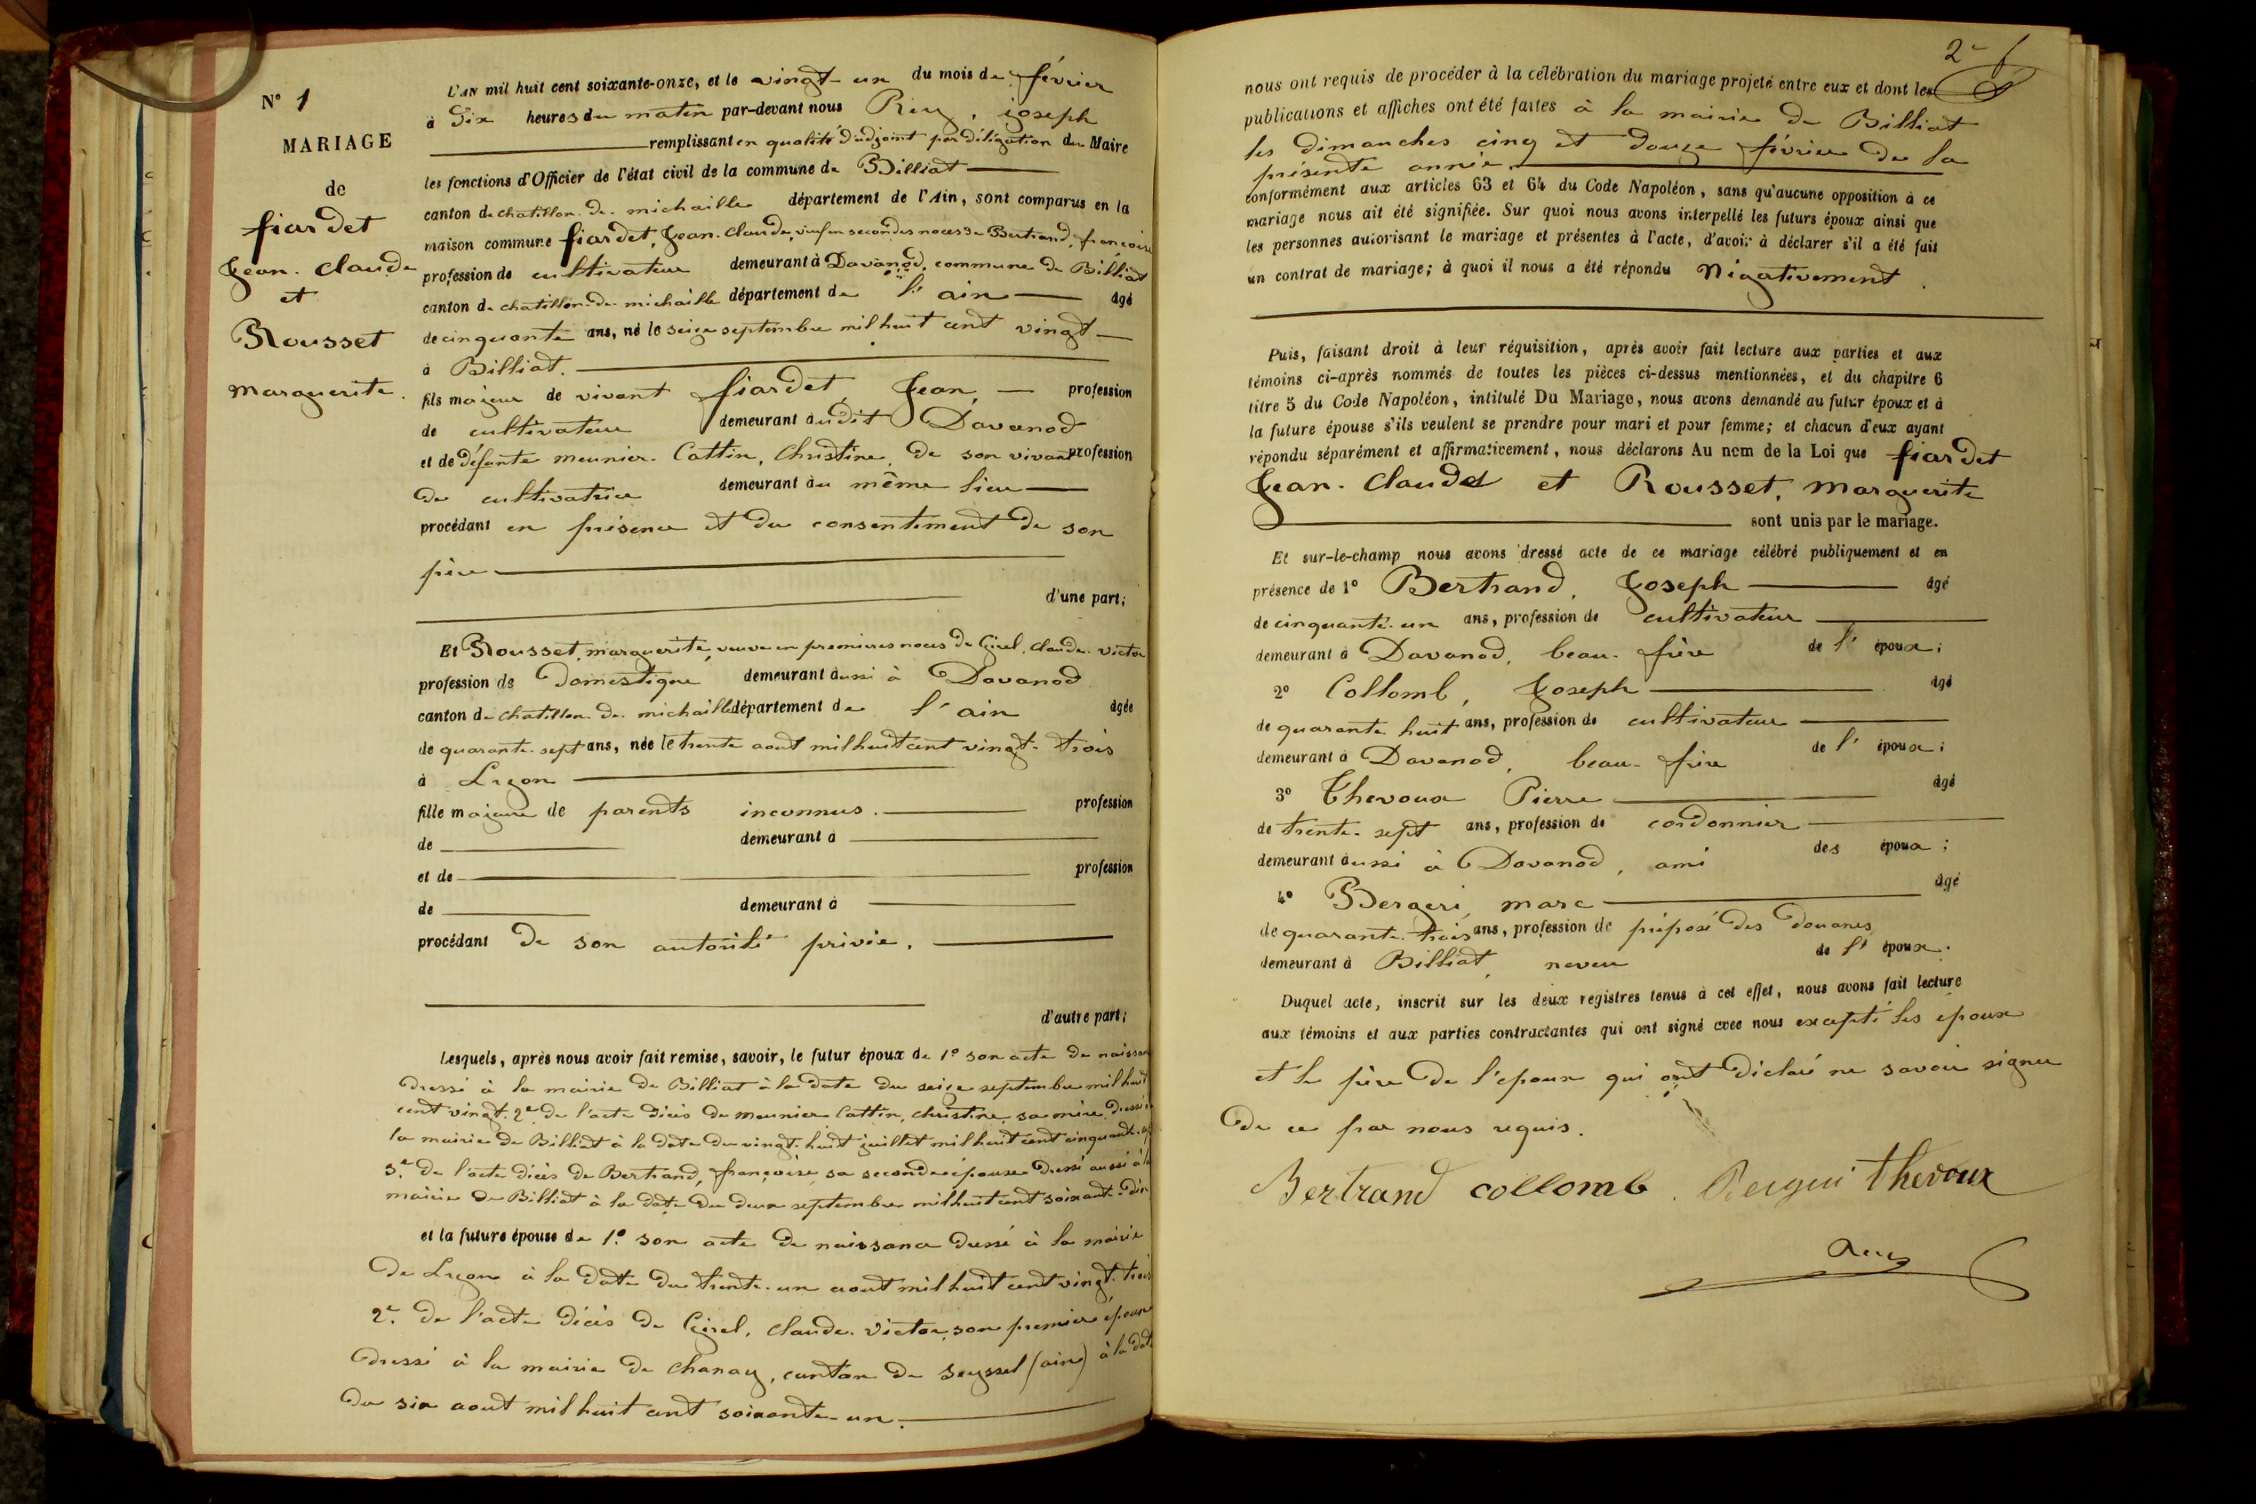 N° 1
MARIAGE
de
fiardet
Jean. Claude
et
Rousset
marguerite.
L'AN mil huit cent soixante-onze, et le vingt-un du mois de février
à Dix heures du matin par-devant nous Rey, joseph
remplissant en qualité d'adjoint par délégation du Maire
les fonctions d'Officier de l'état civil de la commune de Billiat
canton de chatillon-de-michaille département de l'Ain, sont comparus en la
maison commune fiardet, Jean-Claude, veuf en secondes noces de Bertrand, françoise
profession de cultivateur demeurant à Davanod, commune de Billiat
canton de chatillon-de-michaille département de l'ain âgé
de cinquante ans, né le seize septembre mil huit cent vingt
à Billiat.
fils majeur de vivant fiardet, Jean, profession
de cultivateur demeurant audit Davanod
et de défunte meunier-Cattin, Christine, de son vivant profession
de cultivatrice demeurant au même lieu
procédant en présence et du consentement de son
père
d'une part;
Et Rousset, marguerite, veuve en premières noces de Girel, Claude-victor
profession de Domestique demeurant aussi à Davanod
canton de chatillon-de-michaille département de l'ain âgée
de quarante-sept ans, née le trente aout mil huit cent vingt-trois
à Lyon
fille majeure de parents inconnus. profession
de demeurant à
et de profession
de demeurant à
procédant de son autorité privée.
d'autre part;
Lesquels, après nous avoir fait remise, savoir, le futur époux de 1° son acte de naissance
dressé à la mairie de Billiat à la date du seize septembre mil huit
cent vingt. 2° de l'acte décès de meunier Cattin, Christine, sa mère, dressé à
la mairie de Billiat à la date du vingt-huit juillet mil huit cent cinquante
3° de l'acte décès de Bertrand, françoise, sa seconde épouse dressé aussi à la
mairie de Billiat à la date du deux septembre mil huit cent soixante-dix
et la future épouse de 1° son acte de naissance dressé à la mairie
de Lyon à la date du trente-un aout mil huit cent vingt-trois
2° de l'acte décès de Girel, Claude-Victor, son premier époux
dressé à la mairie de Chanay, canton de Seyssel (ain) à la date
du six aout mil huit cent soixante-un.
2e f
nous ont requis de procéder à la célébration du mariage projeté entre eux et dont les
publications et affiches ont été faites à la mairie de Billiat
les dimanches cinq et douze février de la
présente année.
conformément aux articles 63 et 64 du Code Napoléon, sans qu'aucune opposition à ce
mariage nous ait été signifiée. Sur quoi nous avons interpellé les futurs époux ainsi que
les personnes autorisant le mariage et présentes à l'acte, d'avoir à déclarer s'il a été fait
un contrat de mariage; à quoi il nous a été répondu Négativement.
Puis, faisant droit à leur réquisition, après avoir fait lecture aux parties et aux
témoins ci-après nommés de toutes les pièces ci-dessus mentionnées, et du chapitre 6
titre 5 du Code Napoléon, intitulé Du Mariage, nous avons demandé au futur époux et à
la future épouse s'ils veulent se prendre pour mari et pour femme; et chacun d'eux ayant
répondu séparément et affirmativement, nous déclarons Au nom de la Loi que fiardet
Jean-Claude et Rousset, marguerite
sont unis par le mariage.
Et sur-le-champ nous avons dressé acte de ce mariage célébré publiquement et en
présence de 1° Bertrand, Joseph âgé
de cinquante-un ans, profession de cultivateur
demeurant à Davanod, beau-frère de l'époux;
2° Collomb, Joseph âgé
de quarante huit ans, profession de cultivateur
demeurant à Davanod, beau-frère de l'époux;
3° Thevoux Pierre âgé
de trente-sept ans, profession de cordonnier
demeurant aussi à Davanod, ami des époux;
4° Bergeri marc âgé
de quarante-trois ans, profession de préposé des Douanes
demeurant à Billiat, neveu de l'époux.
Duquel acte, inscrit sur les deux registres tenus à cet effet, nous avons fait lecture
aux témoins et aux parties contractantes qui ont signé avec nous excepté les époux
et le père de l'époux qui ont déclaré ne savoir signer
de ce par nous requis.
Bertrand collomb. Bergeri thevoux
Rey